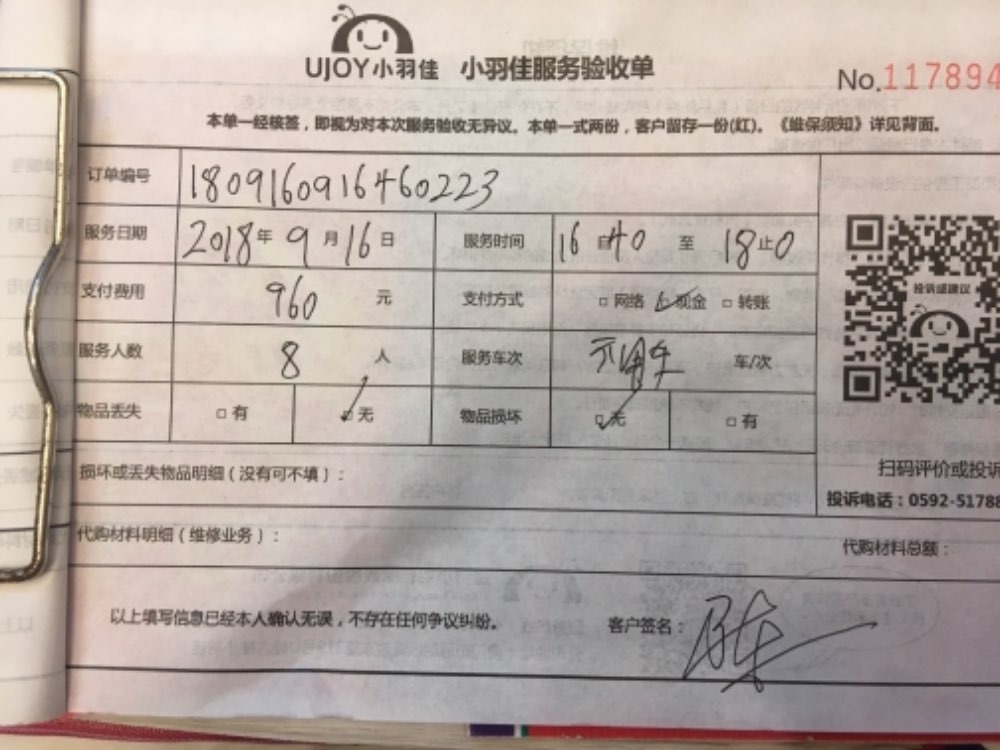 UJOY小羽佳 小羽佳服务验收单
No.117894
本单一经核签，即视为对本次服务验收无异议。本单一式两份，客户留存一份(红)。《维保须知》详见背面。
订单编号 1809160916460223
服务日期 2018 年 9 月 16 日 服务时间 16 40 至 18 0
投诉或建议
支付费用 960 元 支付方式 □网络 ☑现金 □转账
服务人数 8 人 服务车次 车/次
物品丢失 □有 ☑无 物品损坏 ☑无 □有
扫码评价或投诉
损坏或丢失物品明细（没有可不填）：
投诉电话：0592-5178
代购材料明细（维修业务）： 代购材料总额：
以上填写信息已经本人确认无误，不存在任何争议纠纷。 客户签名：